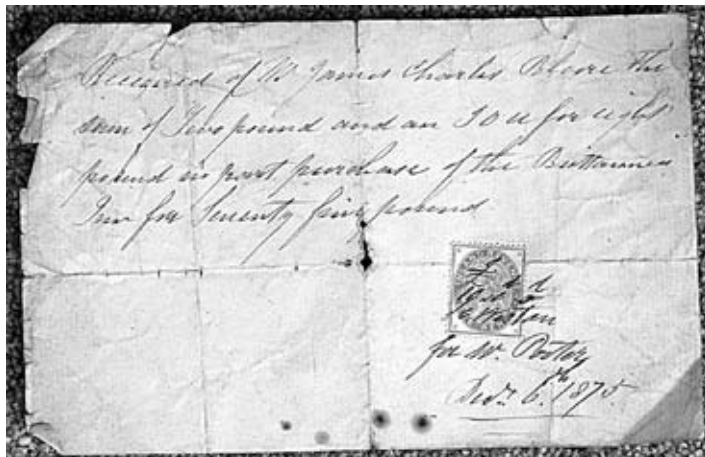 Received of Mr James Charles Bloore the
sum of Two pound and an I O U for eight
pound in part purchase of the Brittannia
Inn for Seventy five pound
for W. Porter
6th 1875